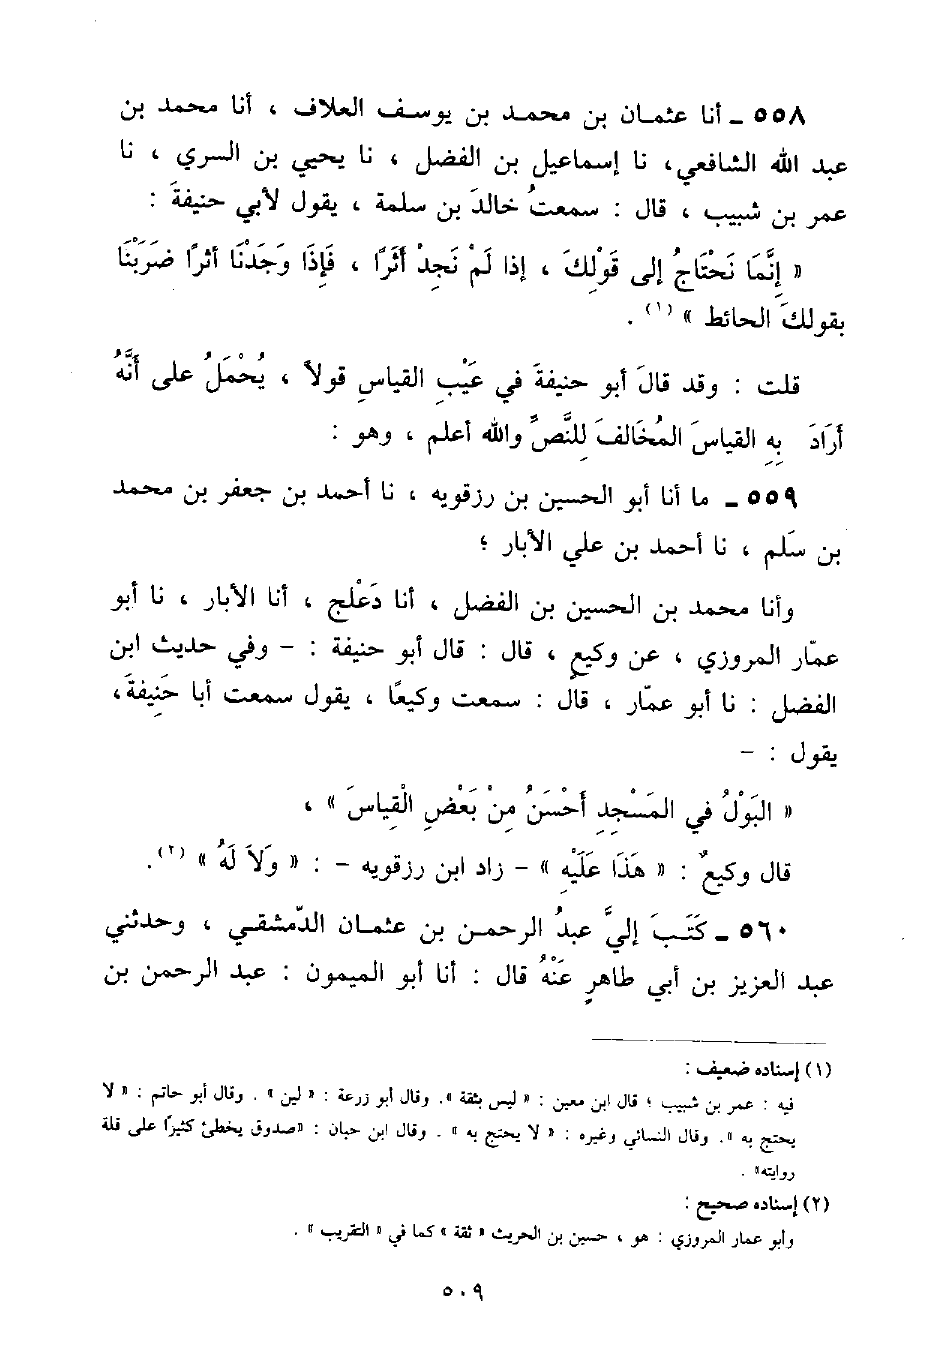 ٥٥٨ ـ أنا عثمان بن محمد بن يوسف العلاف ، أنا محمد بن
عبد الله الشافعي، نا إسماعيل بن الفضل ، نا يحيي بن السري ، نا
عمر بن شبيب ، قال : سمعتُ خالدَ بن سلمة ، يقول لأبي حنيفةَ :
« إِنَّمَا نَحْتَاجُ إلى قَوْلِكَ ، إذا لَمْ نَجِدْ أَثَرًا ، فَإِذَا وَجَدْنَا أثرًا ضَرَبْنَا
بِقولكَ الحائط » (١) .
قلت : وقد قالَ أبو حنيفةَ في عَيْبِ القياسِ قولاً ، يُحْمَلُ على أَنَّهُ
أَرَادَ بِهِ القياسَ المُخَالفَ لِلنَّصِّ والله أعلم ، وهو :
٥٥٩ ـ ما أنا أبو الحسين بن رزقويه ، نا أحمد بن جعفر بن محمد
بن سَلم ، نا أحمد بن علي الأبار ؛
وأنا محمد بن الحسين بن الفضل ، أنا دَعْلج ، أنا الأبار ، نا أبو
عمّار المروزي ، عن وكيعٍ ، قال : قال أبو حنيفة : – وفي حديث ابن
الفضل : نا أبو عمّار ، قال : سمعت وكيعًا ، يقول سمعت أبا حَنِيفةَ ،
يقول : –
« البَوْلُ في المَسْجِدِ أَحْسَنُ مِنْ بَعْضِ الْقِيَاسَ » ،
قال وكيعٌ : « هَذَا عَلَيْهِ » – زاد ابن رزقويه – : « وَلاَ لَهُ » (٢).
٥٦٠ ـ كَتَبَ إليَّ عبدُ الرحمن بن عثمان الدّمشقي ، وحدثني
عبد العزيز بن أبي طاهرٍ عَنْهُ قال : أنا أبو الميمون : عبد الرحمن بن
(١) إسناده ضعيف :
فيه : عمر بن شبيب ؛ قال ابن معين : « ليس بثقة ». وقال أبو زرعة : « لين » . وقال أبو حاتم : « لا
يحتج به ». وقال النسائي وغيره : « لا يحتج به » . وقال ابن حبان : «صدوق يخطئ كثيرًا على قلة
روايته» .
(٢) إسناده صحيح :
وأبو عمار المروزي : هو ، حسين بن الحريث « ثقة » كما في « التقريب » .
٥٠٩